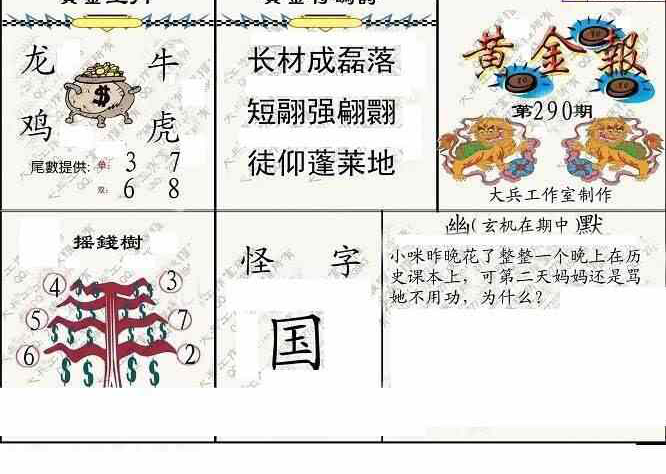 龙 牛
鸡 虎
尾數提供: 单: 3 7
双: 6 8
长材成磊落
短翮强翩翾
徒仰蓬莱地
黄金報
第290期
大兵工作室制作
摇錢樹
4 3
5 7
6 2
怪 字
国
幽(玄机在期中)默
小咪昨晚花了整整一个晚上在历
史课本上，可第二天妈妈还是骂
她不用功，为什么?